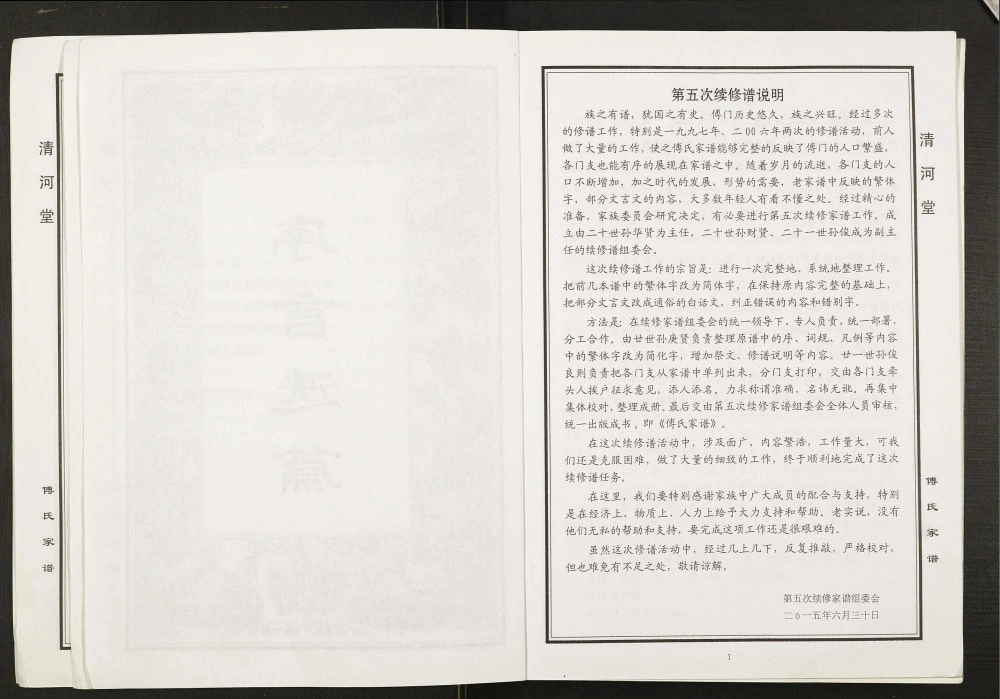 清河堂
傅氏家谱
第五次续修谱说明
族之有谱，犹国之有史。傅门历史悠久，族之兴旺。经过多次
的修谱工作，特别是一九九七年、二00六年两次的修谱活动，前人
做了大量的工作，使之傅氏家谱能够完整的反映了傅门的人口繁盛，
各门支也能有序的展现在家谱之中。随着岁月的流逝，各门支的人
口不断增加，加之时代的发展，形势的需要，老家谱中反映的繁体
字，部分文言文的内容，大多数年轻人有看不懂之处。经过精心的
准备，家族委员会研究决定，有必要进行第五次续修家谱工作。成
立由二十世孙华贤为主任，二十世孙财贤、二十一世孙俊成为副主
任的续修谱组委会。
这次续修谱工作的宗旨是：进行一次完整地、系统地整理工作。
把前几本谱中的繁体字改为简体字，在保持原内容完整的基础上，
把部分文言文改成通俗的白话文，纠正错误的内容和错别字。
方法是：在续修家谱组委会的统一领导下，专人负责，统一部署，
分工合作。由廿世孙庚贤负责整理原谱中的序、词规、凡例等内容
中的繁体字改为简化字，增加祭文、修谱说明等内容。廿一世孙俊
良则负责把各门支从家谱中单列出来，分门支打印，交由各门支牵
头人挨户征求意见，添人添名。力求称谓准确，名讳无讹。再集中
集体校对，整理成册。最后交由第五次续修家谱组委会全体人员审核，
统一出版成书。即《傅氏家谱》。
在这次续修谱活动中，涉及面广，内容繁浩，工作量大，可我
们还是克服困难，做了大量的细致的工作，终于顺利地完成了这次
续修谱任务。
在这里，我们要特别感谢家族中广大成员的配合与支持，特别
是在经济上、物质上、人力上给予大力支持和帮助。老实说，没有
他们无私的帮助和支持，要完成这项工作还是很艰难的。
虽然这次修谱活动中，经过几上几下，反复推敲，严格校对，
但也难免有不足之处，敬请谅解。
第五次续修家谱组委会
二0一五年六月三十日
清河堂
傅氏家谱
1
序言选篇